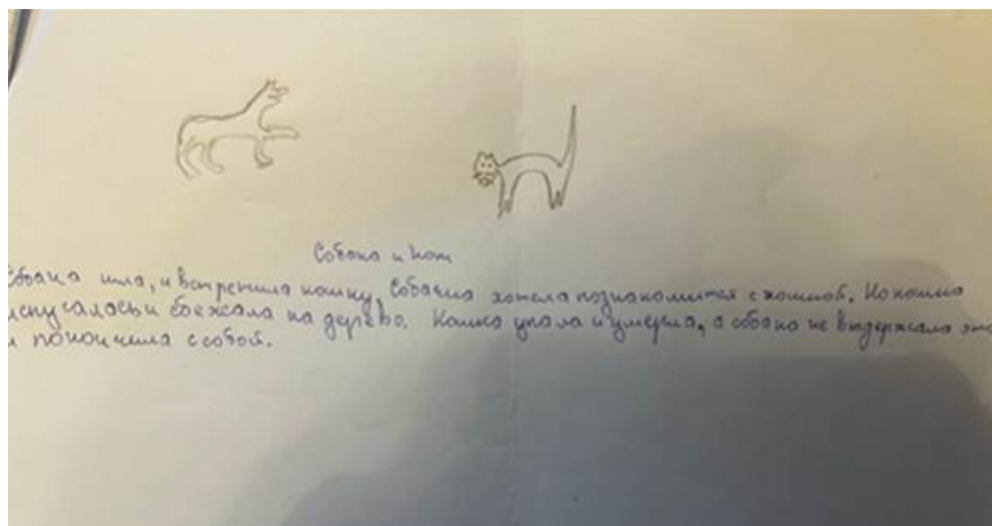 Собака и кот
Собака шла, и встретила кошку, Собачка хотела познакомится с кошкой. Но кошка
испугалась и сбежала на дерево. Кошка упала и умерла, а собака не выдержала это
и покончила с собой.